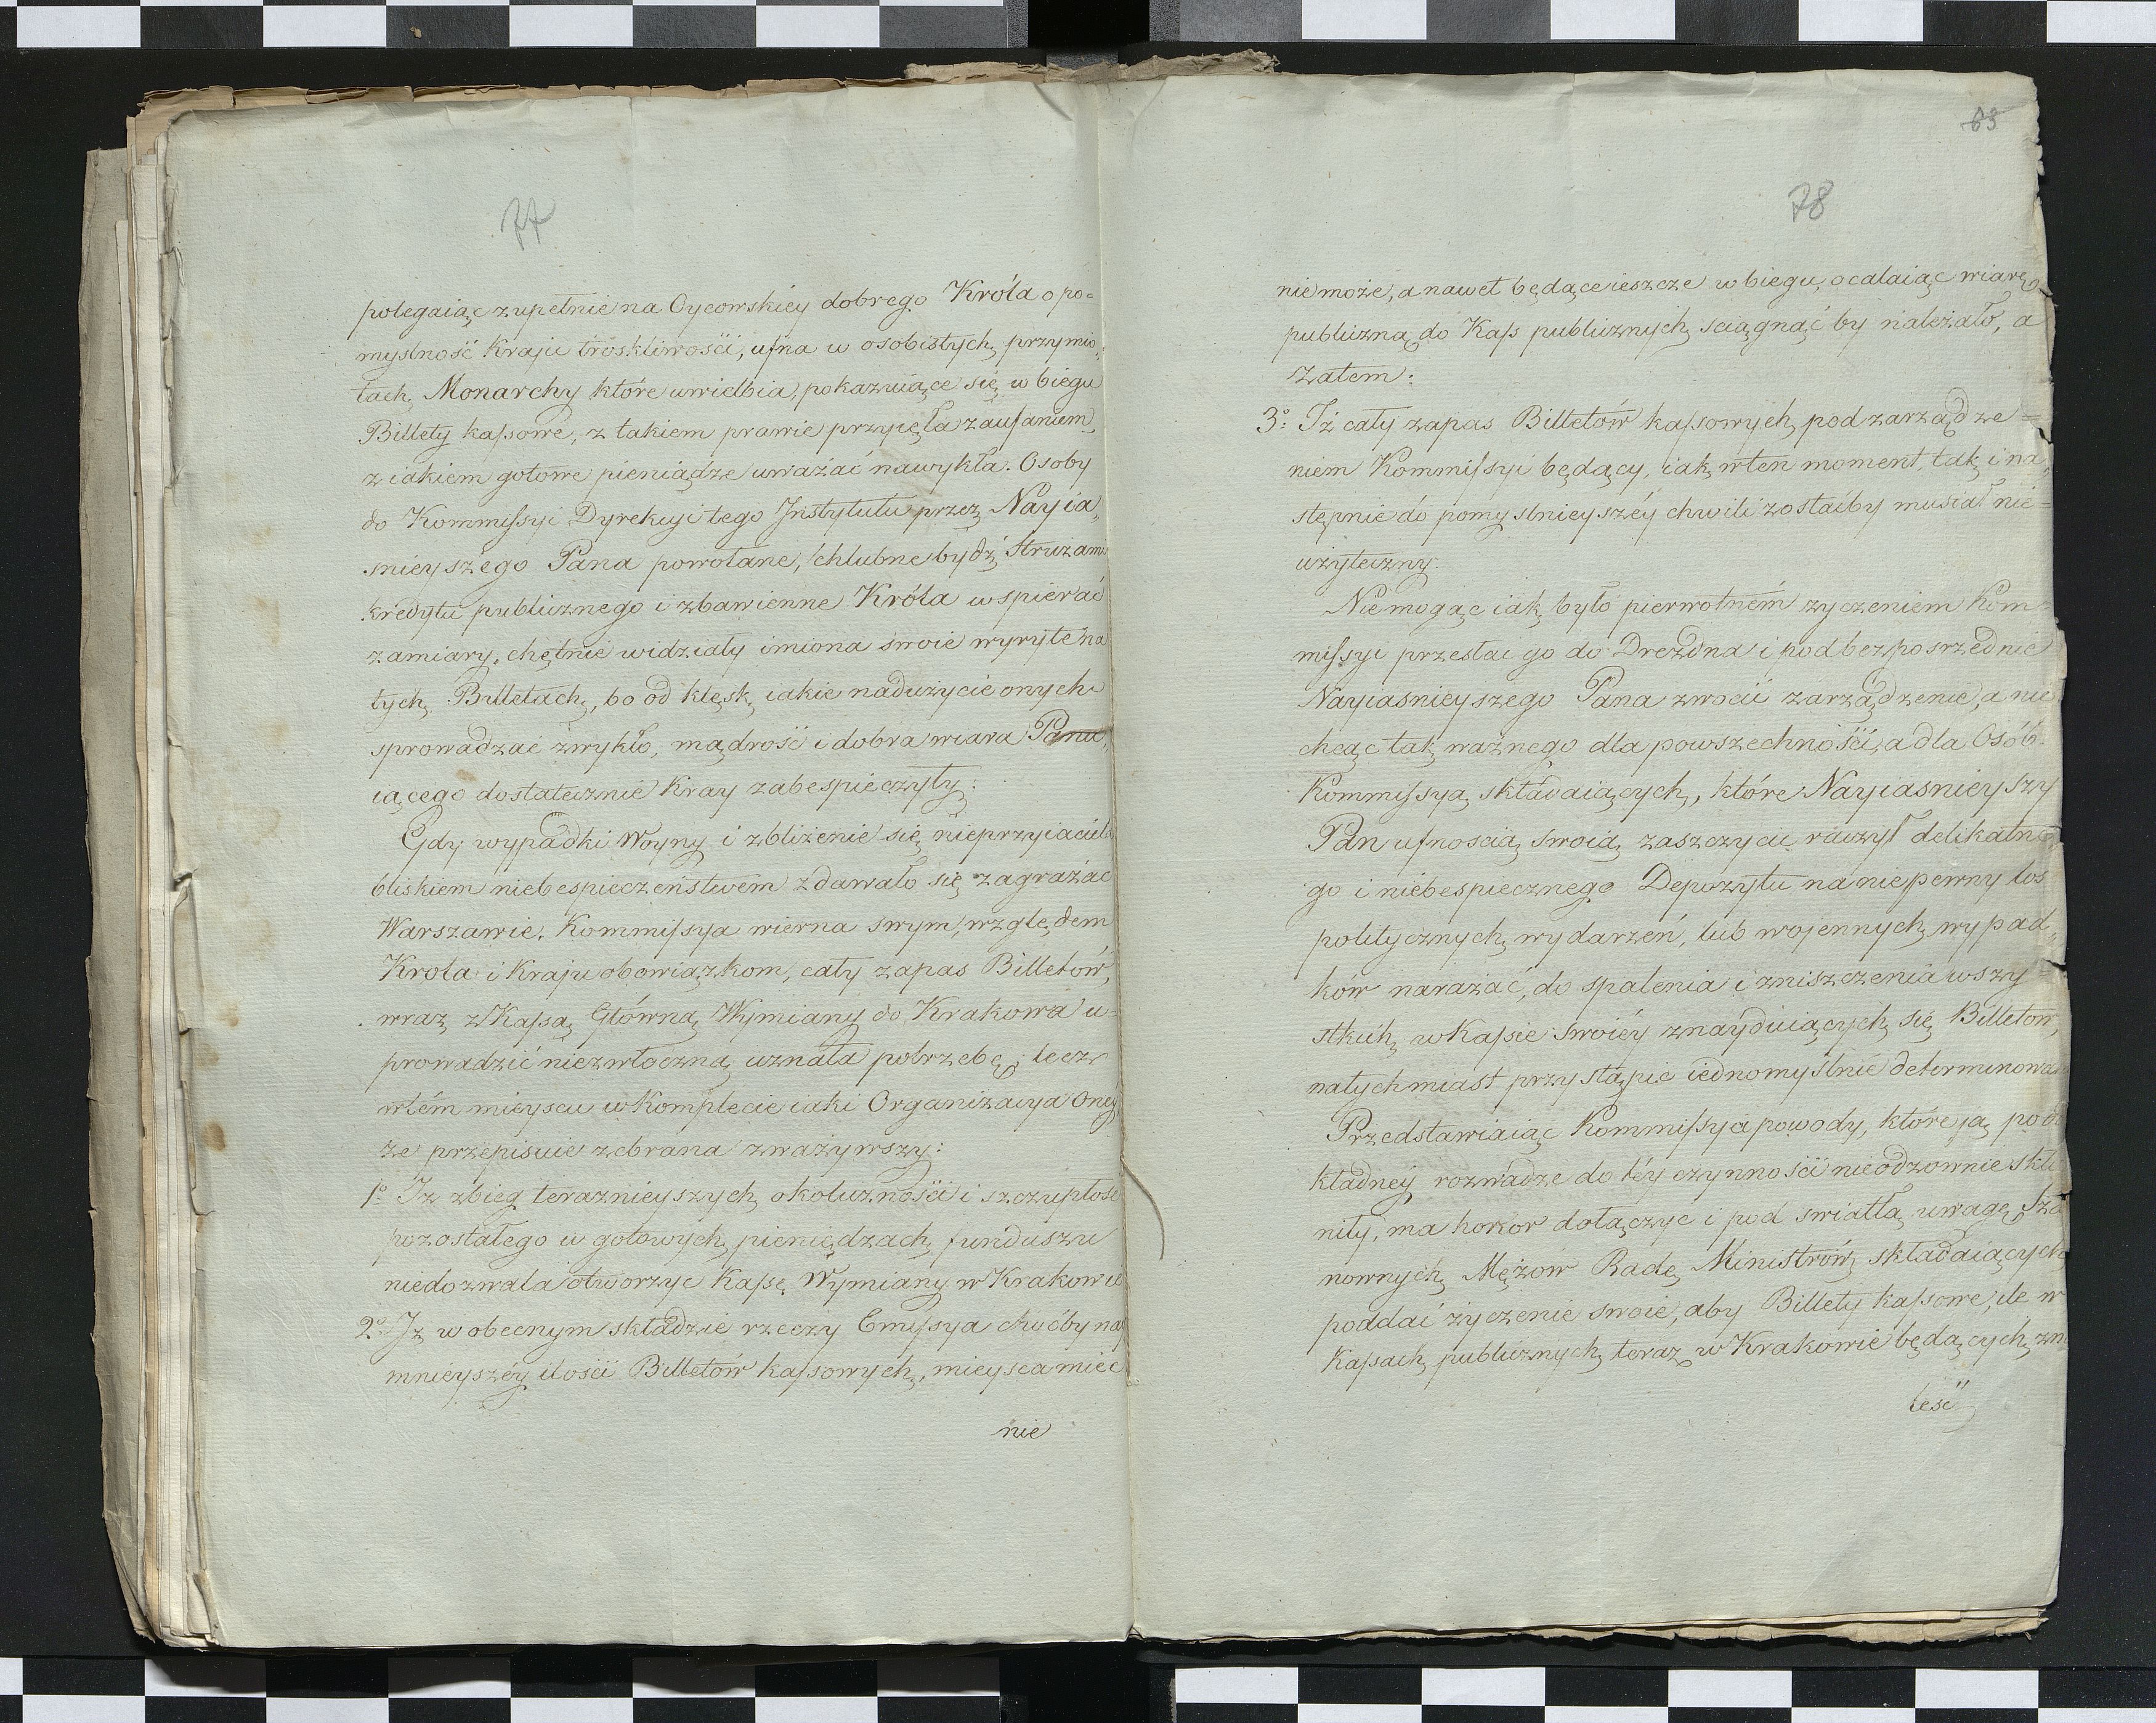 77
polegaiąc zupełnie na Oycowskiéy dobrego Króla o po=
myslność Kraju troskliwości, ufna w osobistych przymio„
tach Monarchy które uwielbia, pokazuiące się w biegu
Billety kassowe, z takiem prawie przyięła zaufaniem,
z iakiem gotowe pieniądze uważać nawykła. Osoby
do Kommissyi Dyrekcyi tego Instytutu przez Nayia„
snieyszego Pana powołane, chlubne bydź Stróżami
kredytu publicznego i zbawienne Króla wspierać
zamiary, chętnie widziały imiona swoie wyryte na
tych Billetach, bo od klęsk, iakie nadużycie onych
sprowadzać zwykło, mądrość i dobra wiara Panu„
iącego dostatecznie Kray zabespieczyły.
Gdy wypadki Woyny i zbliżenie się nieprzyiaciela
bliskiem niebespieczeństwem zdawało się zagrażać
Warszawie, Kommissya wierna swym, względem
Krola i Kraju obowiązkom, cały zapas Billetów,
wraz z Kassą Główną Wymiany do Krakowa u=
prowadzić niezwłoczną uznała potrzebę, lecz
w tém mieyscu w Komplecie iaki Organizacya Onéy
że przepisuie zebrana zważywszy:
1º Iż zbieg teraznieyszych okoliczności i szczupłość
pozostałego w gotowych pieniędzach funduszu
niedozwala otworzyć Kassę Wymiany w Krakowie
2º Iż w obecnym składzie rzeczy Emissya choćby nay
mnieyszéy ilości Billetów kassowych, mieysca mieć
nie
83
78
nie może, a nawet będące ieszcze w biegu, ocalaiąc wiarę
publiczną do Kass publicznych sciągnąć by należało, a
zatem:
3º Iż cały zapas Billetów kassowych pod zarządze=
niem Kommissyi będący, iak w ten moment, tak i na„
stępnie do pomyslnieyszéy chwili zostaćby musiał nie=
użyteczny.
Nie mogąc iak było pierwotném życzeniem Kom=
missyi przesłać go do Drezdna i pod bezposrzednie
Nayiasnieyszego Pana zwrócić zarządzenie, a nie
chcąc tak ważnego dla powszechności, a dla Osób
Kommissyą składaiących, które Nayiasnieyszy
Pan ufnoscią swoią zaszczycić raczył delikatne
go i niebespiecznego Depozytu na niepewny los
politycznych wydarzeń, lub wojennych wypad„
ków narażać, do spalenia i zniszczenia wszy=
stkich w Kassie swoiéy znayduiących się Billetow,
natychmiast przystąpić iednomyślnie determinowa
Przedstawiaiąc Kommissya powody, które ją po do
kładnéy rozwadze do téy czynności nieodzownie skło
niły, ma honor dołączyc i pod swiatłą uwagę Sza
nownych Mężów Radę Ministrów składaiących
poddać życzenie swoie, aby Billety kassowe, ile w
Kassach publicznych teraz w Krakowie będących zn
leść